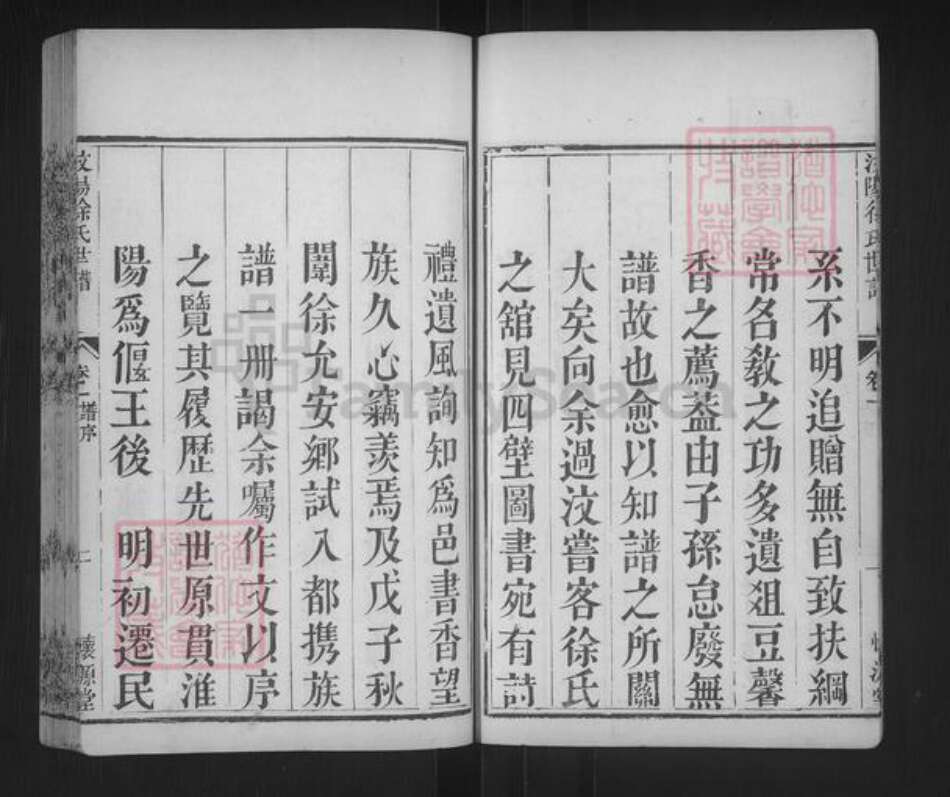 系不明追贈無自致扶綱
常名教之功多遺俎豆馨
香之薦葢由子孫怠廢無
譜故也愈以知譜之所關
大矣向余過汶嘗客徐氏
之舘見四壁圖書宛有詩
禮遺風詢知爲邑書香望
族久心竊羨焉及戊子秋
闈徐允安鄉試入都携族
譜一冊謁余囑作文以序
之覽其履歷先世原貫淮
陽爲偃王後 明初遷民
汶陽徐氏世譜 卷一 譜序 二 懷源堂
FamilySearch